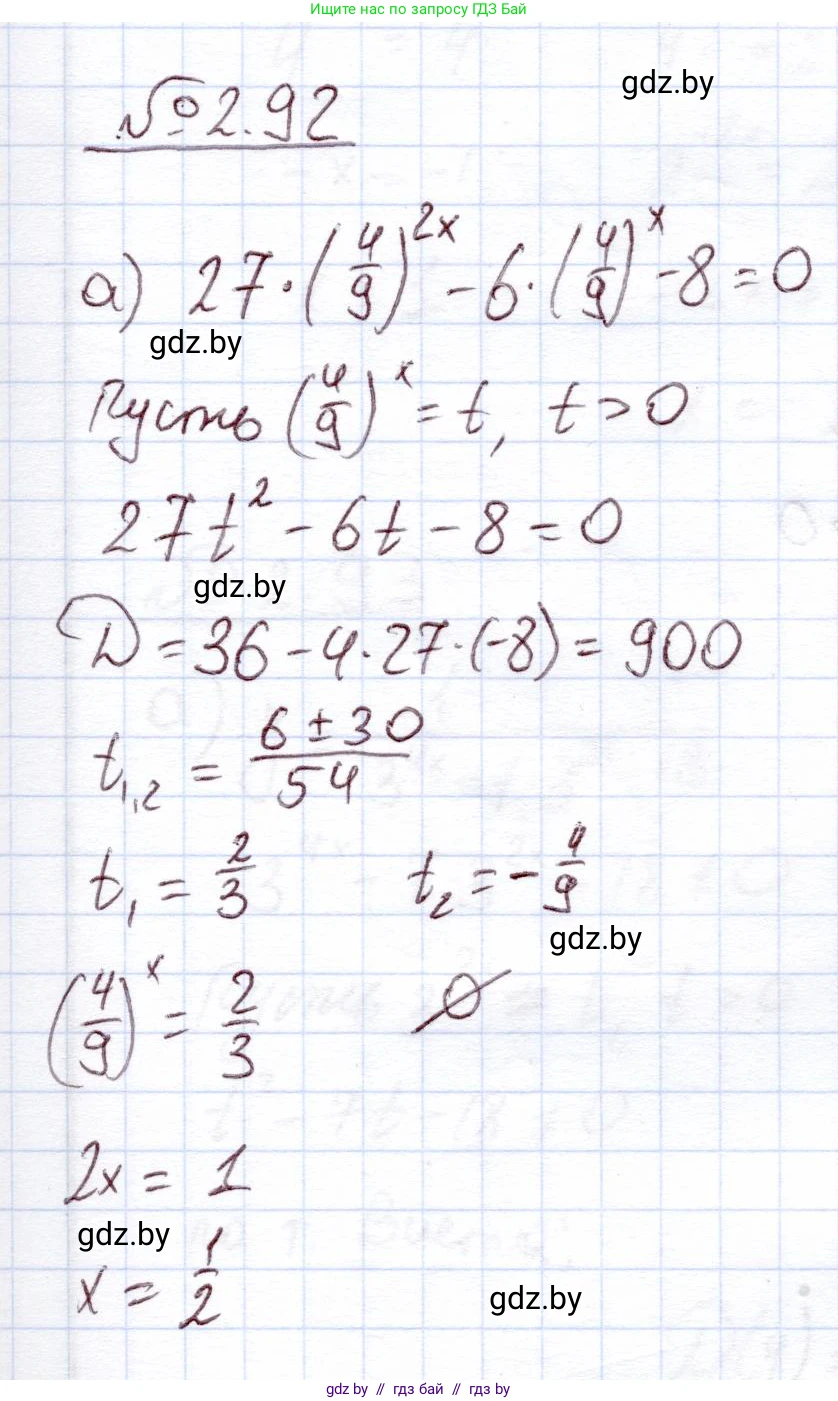 Ищите нас по запросу ГДЗ Бай
gdz.by
№ 2.92
а) 27·(4/9)^2x - 6·(4/9)^x - 8 = 0
gdz.by
Пусть (4/9)^x = t, t > 0
27t² - 6t - 8 = 0
gdz.by
D = 36 - 4·27·(-8) = 900
t1,2 = (6 ± 30)/54
t1 = 2/3 t2 = -4/9
gdz.by
(4/9)^x = 2/3 ∅
2x = 1
gdz.by
x = 1/2
gdz.by
gdz.by // гдз бай // gdz.by